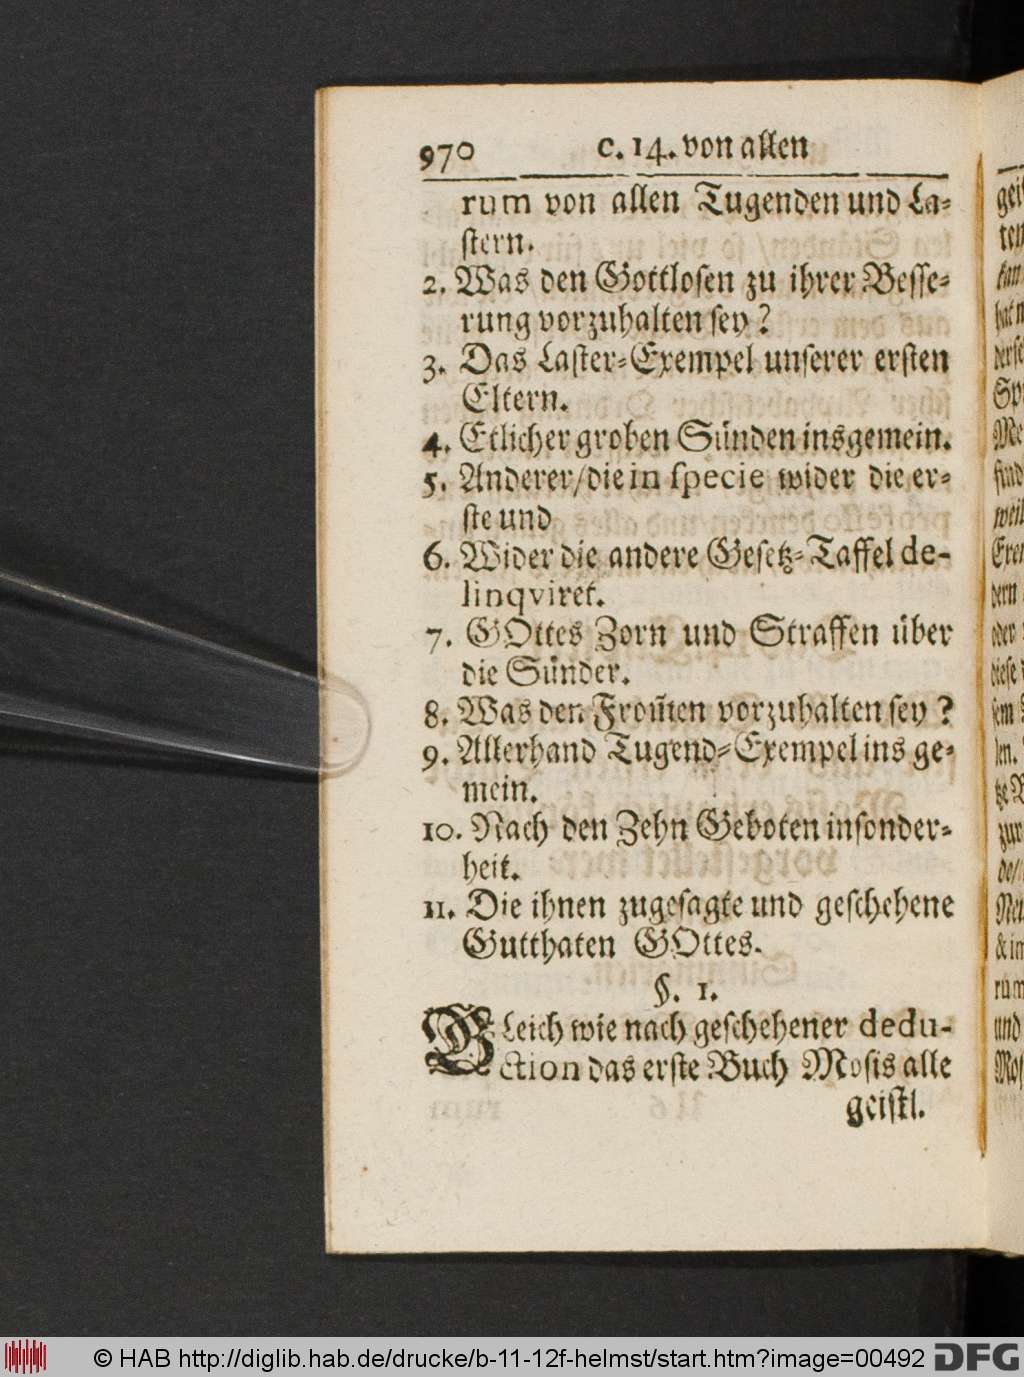 970 c. 14. von allen
rum von allen Tugenden und La-
stern.
2. Was den Gottlosen zu ihrer Besse-
rung vorzuhalten sey?
3. Das Laster-Exempel unserer ersten
Eltern.
4. Etlicher groben Sünden insgemein.
5. Anderer/die in specie wider die er-
ste und
6. Wider die andere Gesetz-Taffel de-
linqviret.
7. GOttes Zorn und Straffen über
die Sünder.
8. Was den From̃en vorzuhalten sey?
9. Allerhand Tugend-Exempel ins ge-
mein.
10. Nach den Zehn Geboten insonder-
heit.
11. Die ihnen zugesagte und geschehene
Gutthaten GOttes.
§. 1.
GLeich wie nach geschehener dedu-
ction das erste Buch Mosis alle
geistl.
© HAB http://diglib.hab.de/drucke/b-11-12f-helmst/start.htm?image=00492 DFG